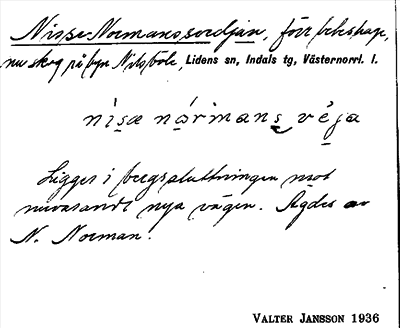 Nisse-Normans-vedjan, förr fäbodskape,
nu skog på byn Nilsböle, Lidens sn, Indals tg, Västernorrl. l.
nisæ nårimans véja
Ligger i bergssluttningen mot
nuvarande nya vägen. Ägdes av
N. Norman.
VALTER JANSSON 1936